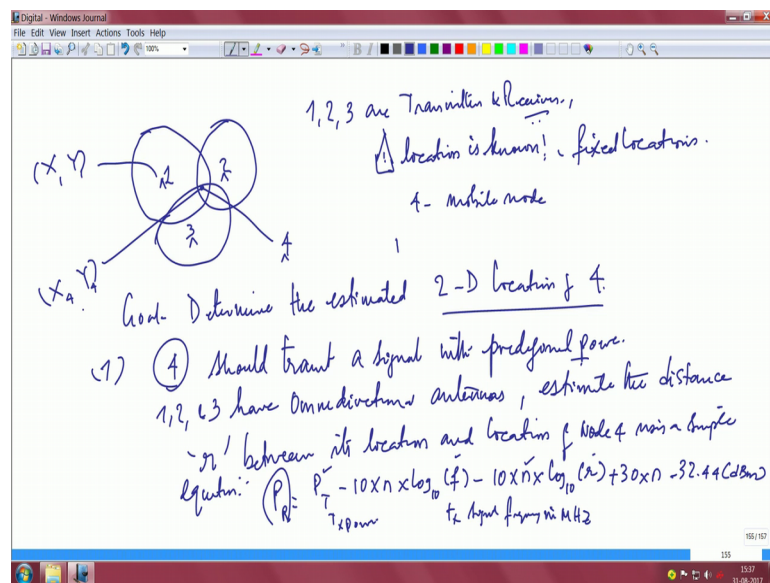 Digital - Windows Journal
File Edit View Insert Actions Tools Help
100%
1, 2, 3 are Transmitters & Receivers,
location is known! fixed locations.
4 - mobile node
(X, Y)
1
2
3
4
(X4, Y4)
Goal- Determine the estimated 2-D location of 4.
(1) 4 should transmit a signal with predefined power.
1, 2, & 3 have Omnidirectional antennas, estimate the distance
'r' between its location and location of Node 4 using a simple
equation: PR = PT - 10 x n x log10 (f) - 10 x n x log10 (r) + 30 x n - 32.44 (dBm)
Tx power
tx signal frequency in MHz
155/157
155
15:37
31-08-2017